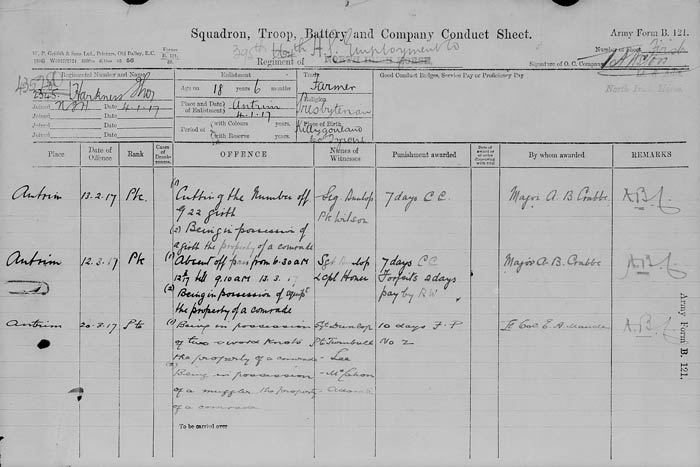 Squadron, Troop, Battery and Company Conduct Sheet.
Army Form B. 121.
W. P. Griffith & Sons Ld., Printers, Old Bailey, E.C.
Forms
B. 121.
Number of Sheet First
Employment Co
Regiment of
Signature of O. C. Company
North Irish Horse.
Regimental Number and Name
2345 Harkness Thos
Joined N I H Date 4.1.17
Joined Date
Joined Date
Joined Date
Enlistment
Age on 18 years 6 months
Place and Date of Enlistment Antrim
4-1-17
Period of with Colours years.
with Reserve years.
Trade
Farmer
Religion
Presbyterian
Place of Birth
Good Conduct Badges, Service Pay or Proficiency Pay
Place
Date of Offence
Rank
Cases of Drunkenness
OFFENCE
Names of Witnesses
Punishment awarded
Date of award or of order dispensing with trial
By whom awarded
REMARKS
Antrim 13.2.17 Pte. (1) Cutting the Number off Sgt Dunlop 7 days C C. Major A. B. Crabbe A.B.C.
a 22 girth Pte Wilson
(2) Being in possession of
a girth the property of a comrade
Antrim 12.3.17 Pte (1) Absent off pass from 6.30 AM Sgt Dunlop 7 days CC Major A. B. Crabbe A.B.C.
12th till 9.10 AM 13.3.17 LCpl Forfeits 2 days
(2) Being in possession of equipt pay by RW
the property of a comrade
Antrim 20.3.17 Pte (1) Being in possession Sgt Dunlop 10 days F. P Lt Col E. A. Maude A.B.C.
of two sword knots Pte Turnbull No 2
the property of a comrade - Lee
(2) Being in possession - McCahon
of a muggler the property
of a comrade
To be carried over
Army Form B. 121.